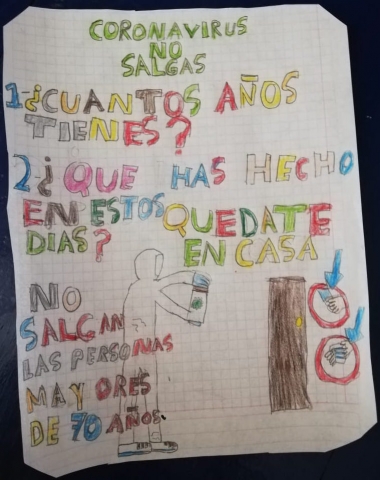 CORONAVIRUS
NO
SALGAS
1-¿CUANTOS AÑOS
TIENES?
2-¿QUE HAS HECHO
EN ESTOS
DIAS?
QUEDATE
EN CASA
NO
SALGAN
LAS PERSONAS
MAYORES
DE 70 AÑOS.